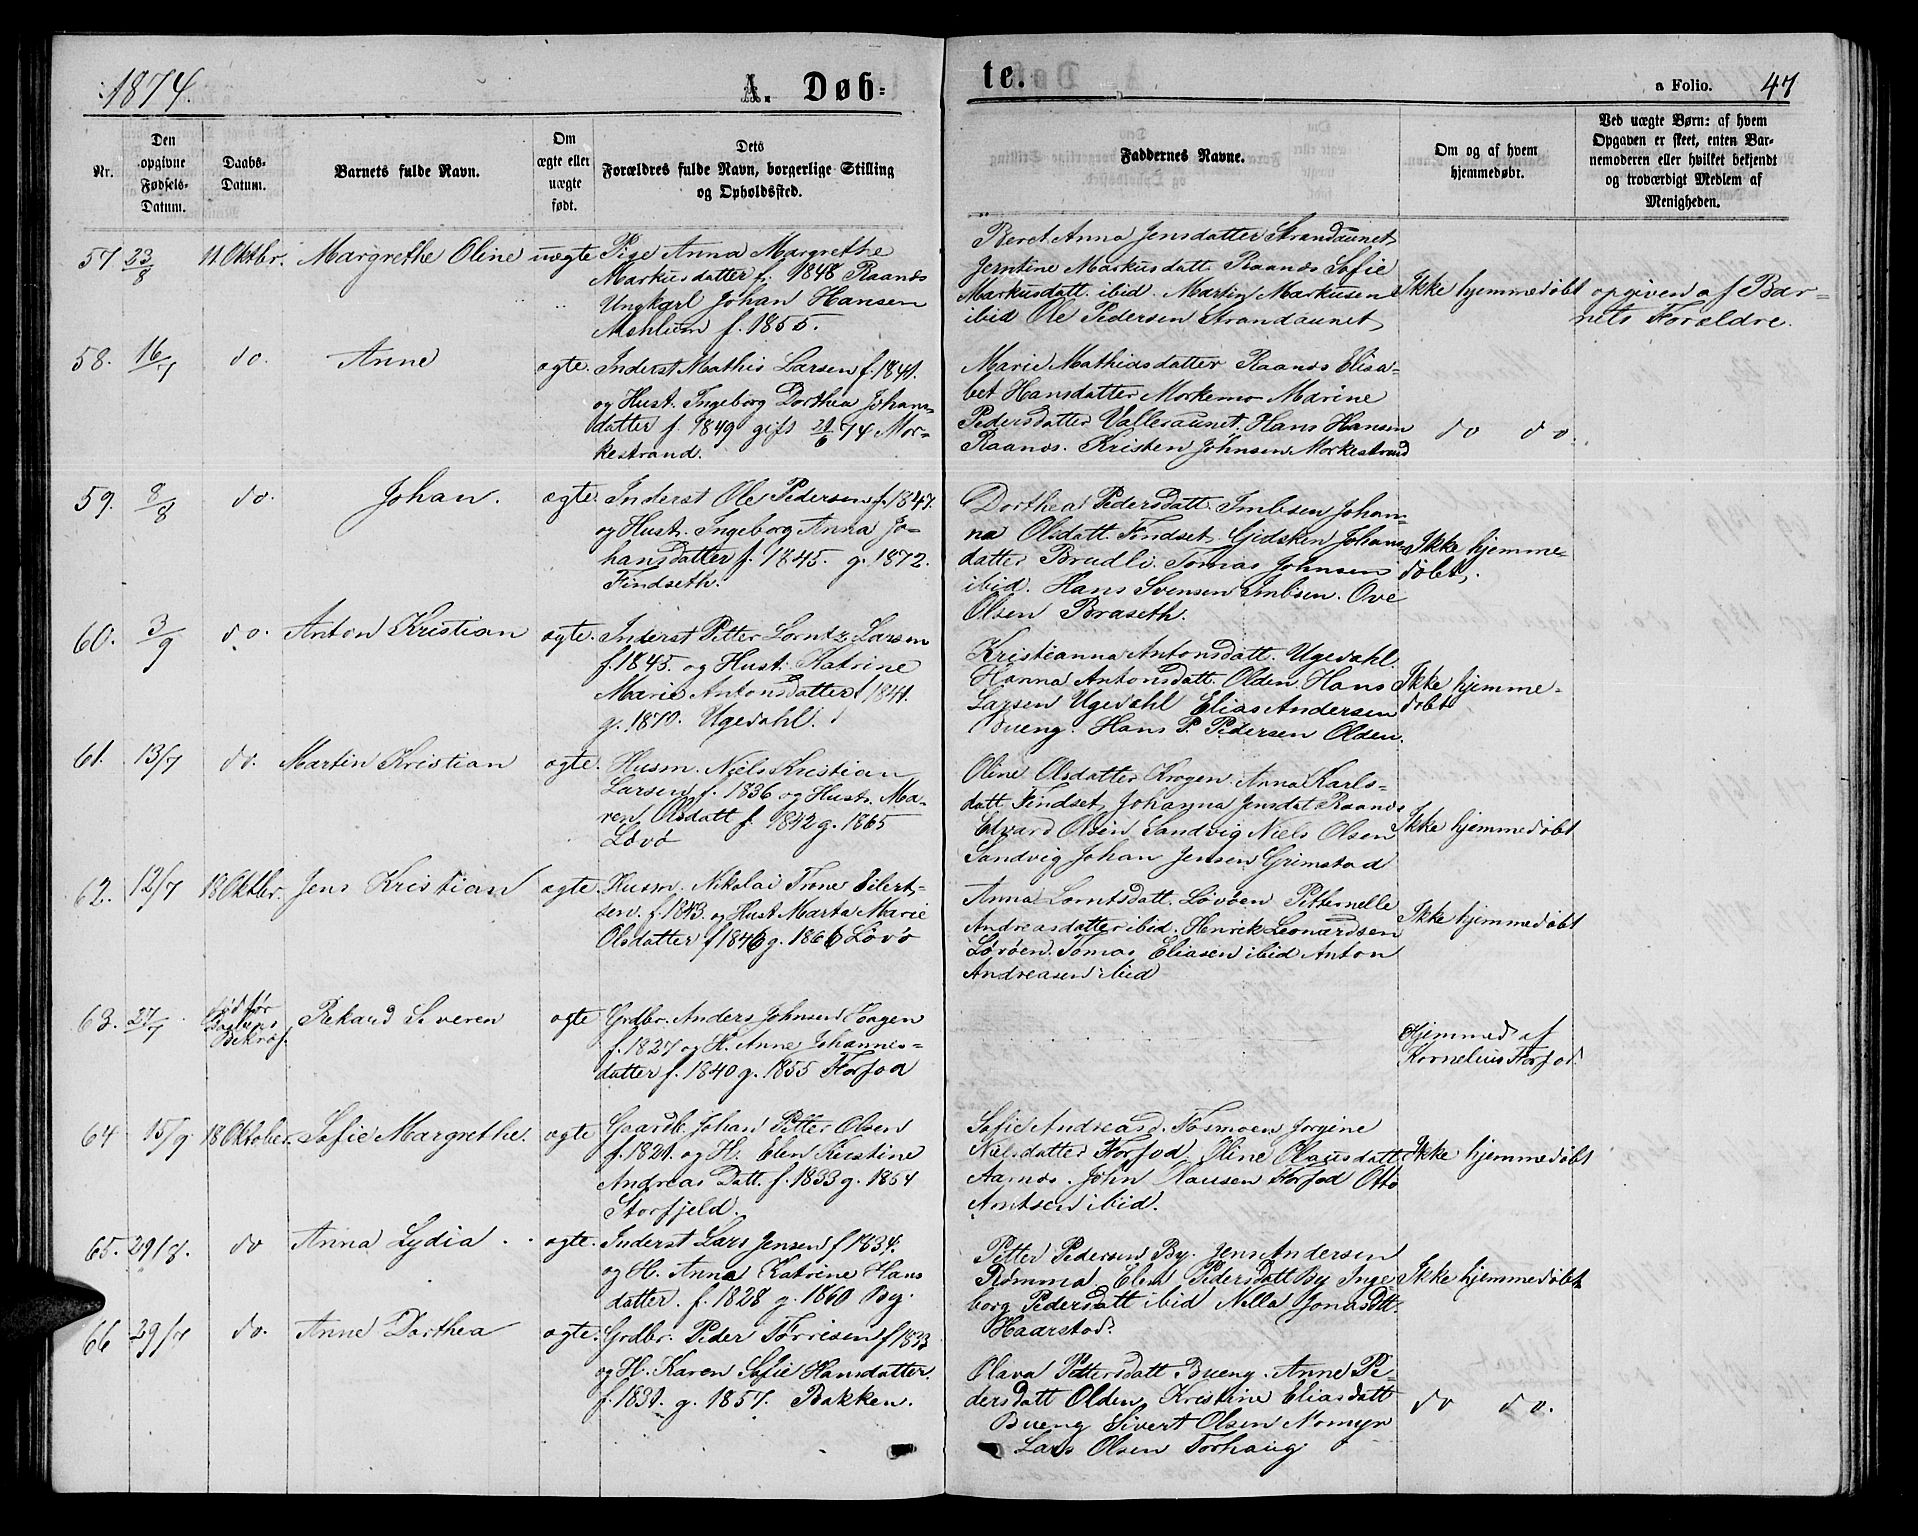 1874.
A. Døb-
te.
a Folio. 47
Nr.
Den
opgivne
Fødsels-
Datum.
Daabs-
Datum.
Barnets fulde Navn.
Om
ægte eller
uægte
født.
Dets
Forældres fulde Navn, borgerlige Stilling
og Opholdssted.
Faddernes Navne.
Om og af hvem
hjemmedøbt.
Ved uægte Børn: af hvem
Opgaven er skeet, enten Bar-
nemoderen eller hvilket bekjendt
og troværdigt Medlem af
Menigheden.
57 23/8 11 Oktbr. Margrethe Oline uægte
Pige Anna Margrethe
Markusdatter f. 1848 Raanes
Ungkarl Johan Hansen
Mehlum f. 1855.
Beret Anna Jensdatter Strandaunet
Jerntine Markusdatt. Raanes Sofie
Markusdatt. ibid. Martin Markusen
ibid Ole Pedersen Strandaunet
Ikke hjemmedøbt
opgiven af Bar-
nets Forældre.
58. 16/7 do. Anne ægte.
Inderst Mathis Larsen f. 1841.
og Hust. Ingeborg Dorthea Johans-
datter f. 1849 gift 21/6 74 Mor-
kestrand.
Marie Mathiasdatter Raanes Elisa-
bet Hansdatter Morkemo Marine
Pedersdatter Valleraunet. Hans Hansen
Raanes. Kristen Johnsen Morkestrand
do do.
59. 8/8 do. Johan. ægte.
Inderst Ole Pedersen f. 1847.
og Hust. Ingeborg Anna Jo-
hansdatter f. 1845. g. 1872.
Findseth.
Dorthea Pedersdatt. Imbsen Johan-
na Olsdatt Findset Gidsken Johans-
datter Brudli. Tomas Johnsen
ibid. Hans Svensen Imbsen. Ove
Olsen Braseth.
Ikke hjemme-
døbt.
60. 3/9 do. Anton Kristian ægte.
Inderst Petter Lorntz Larsen
f. 1845. og Hust. Katrine
Marie Antonsdatter f. 1841.
g. 1870. Ugedahl.
Kristianna Antonsdatt. Ugedahl.
Hanna Antonsdatt. Olden. Hans
Larsen Ugedahl Elias Andersen
Bueng. Hans P. Pedersen Olden.
Ikke hjemme-
døbt
61. 13/7 do. Martin Kristian ægte.
Husm. Niels Kristian
Larsen f. 1836 og Hustr. Ma-
ren Olsdatt f. 1842 g. 1865
Løvø
Oline Olsdatter Krogen. Anna Karls-
datt Findset, Johanna Jensdat. Raanes
Edvard Olsen Sandvig Niels Olsen
Sandvig Johan Jensen Grimstad
Ikke hjemmedøbt
62. 12/7 18 Oktbr. Jens Kristian ægte.
Husm. Nikolai Trone Eilert-
sen. f. 1843. og Hust Marta Marie
Olsdatter f 1846 g. 1866 Løvø
Anna Lorntsdatt. Løvøen Petternelle
Andreasdatter ibid. Henrik Leonardsen
Løvøen. Tomas Eliasen ibid Anton
Andreasen ibid
Ikke hjemmedøbt
63. 27/7 død før
Daabens
Bekræf. Rekard Severen ægte
Grdbr. Anders Johnsen Haagen
f. 1827 og H. Anne Johannes-
datter f. 1840 g. 1855 Forfod
Hjemmed af
Kornelius Forfod.
64 15/9 18 Oktober. Sofie Margrethe. ægte
Gaardb. Johan Petter Olsen
f. 1821. og H. Elen Kristine
Andreas Datt. f. 1833 g. 1854
Storfjeld.
Sofie Andreasd. Fosmoen Jorgine
Nielsdatter Forfod, Oline Olausdatt
Aarnes. John Hansen Forfod Otto
Arntsen ibid.
Ikke hjemmedøbt
65. 29/8. do Anna Lydia. ægte.
Inderst Lars Jensen f 1834.
og H. Anna Katrine Hans
datter. f. 1828 g. 1860 By.
Petter Pedersen By. Jens Andersen
Rømma. Elen Pedersdatt By Inge
borg Pedersdatt ibid Nella Jonasdtt
Haarstad.
Ikke hjemmedøbt
66 29/7 do. Anne Dorthea ægte.
Grdbr. Peder Torrisen f 1833
og H. Karen Sofie Hansdatter
f. 1831. g. 1857. Bakken.
Olava Pettersdatt Bueng. Anne Pe-
dersdatt Olden, Kristine Eliasdatt
Bueng Sivert Olsen Nomyr
Lars Olsen Torhaug
do do.